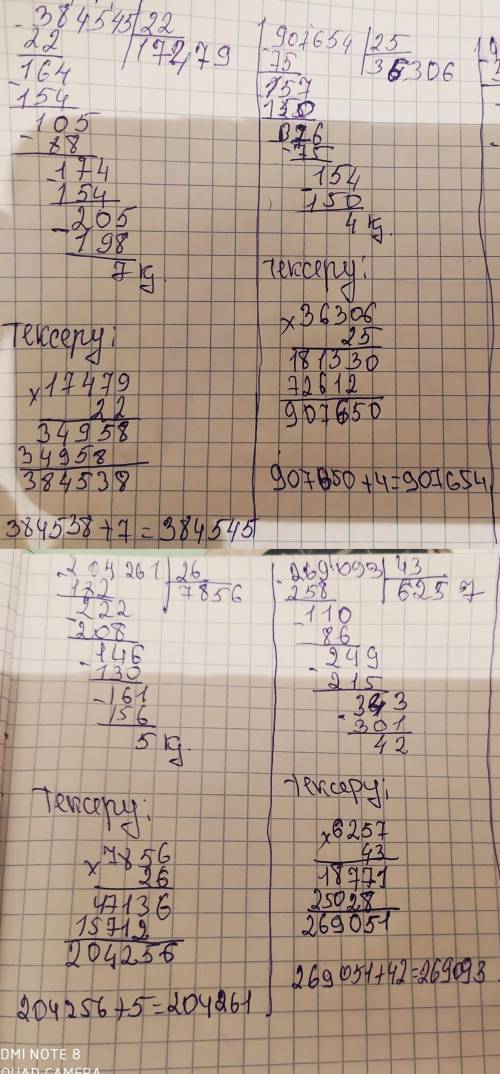 - 384545 | 22
22 | 17479
- 164
154
105
- 88
- 174
154
- 205
198
7 қ.
Тексеру:
× 17479
22
34958
34958
384538
384538+7=384545
- 907654 | 25
75 | 36306
157
150
- 75
- 154
150
4 қ.
Тексеру:
× 36306
25
181530
72612
907650
907650+4=907654
- 204261 | 26
182 | 7856
- 222
208
- 146
130
- 161
156
5 қ.
Тексеру:
× 7856
26
47136
15712
204256
204256+5=204261
- 269093 | 43
258 | 6257
- 110
86
- 249
215
- 343
301
42
Тексеру:
× 6257
43
18771
25028
269051
269051+42=269093
DMI NOTE 8
QUAD CAMERA